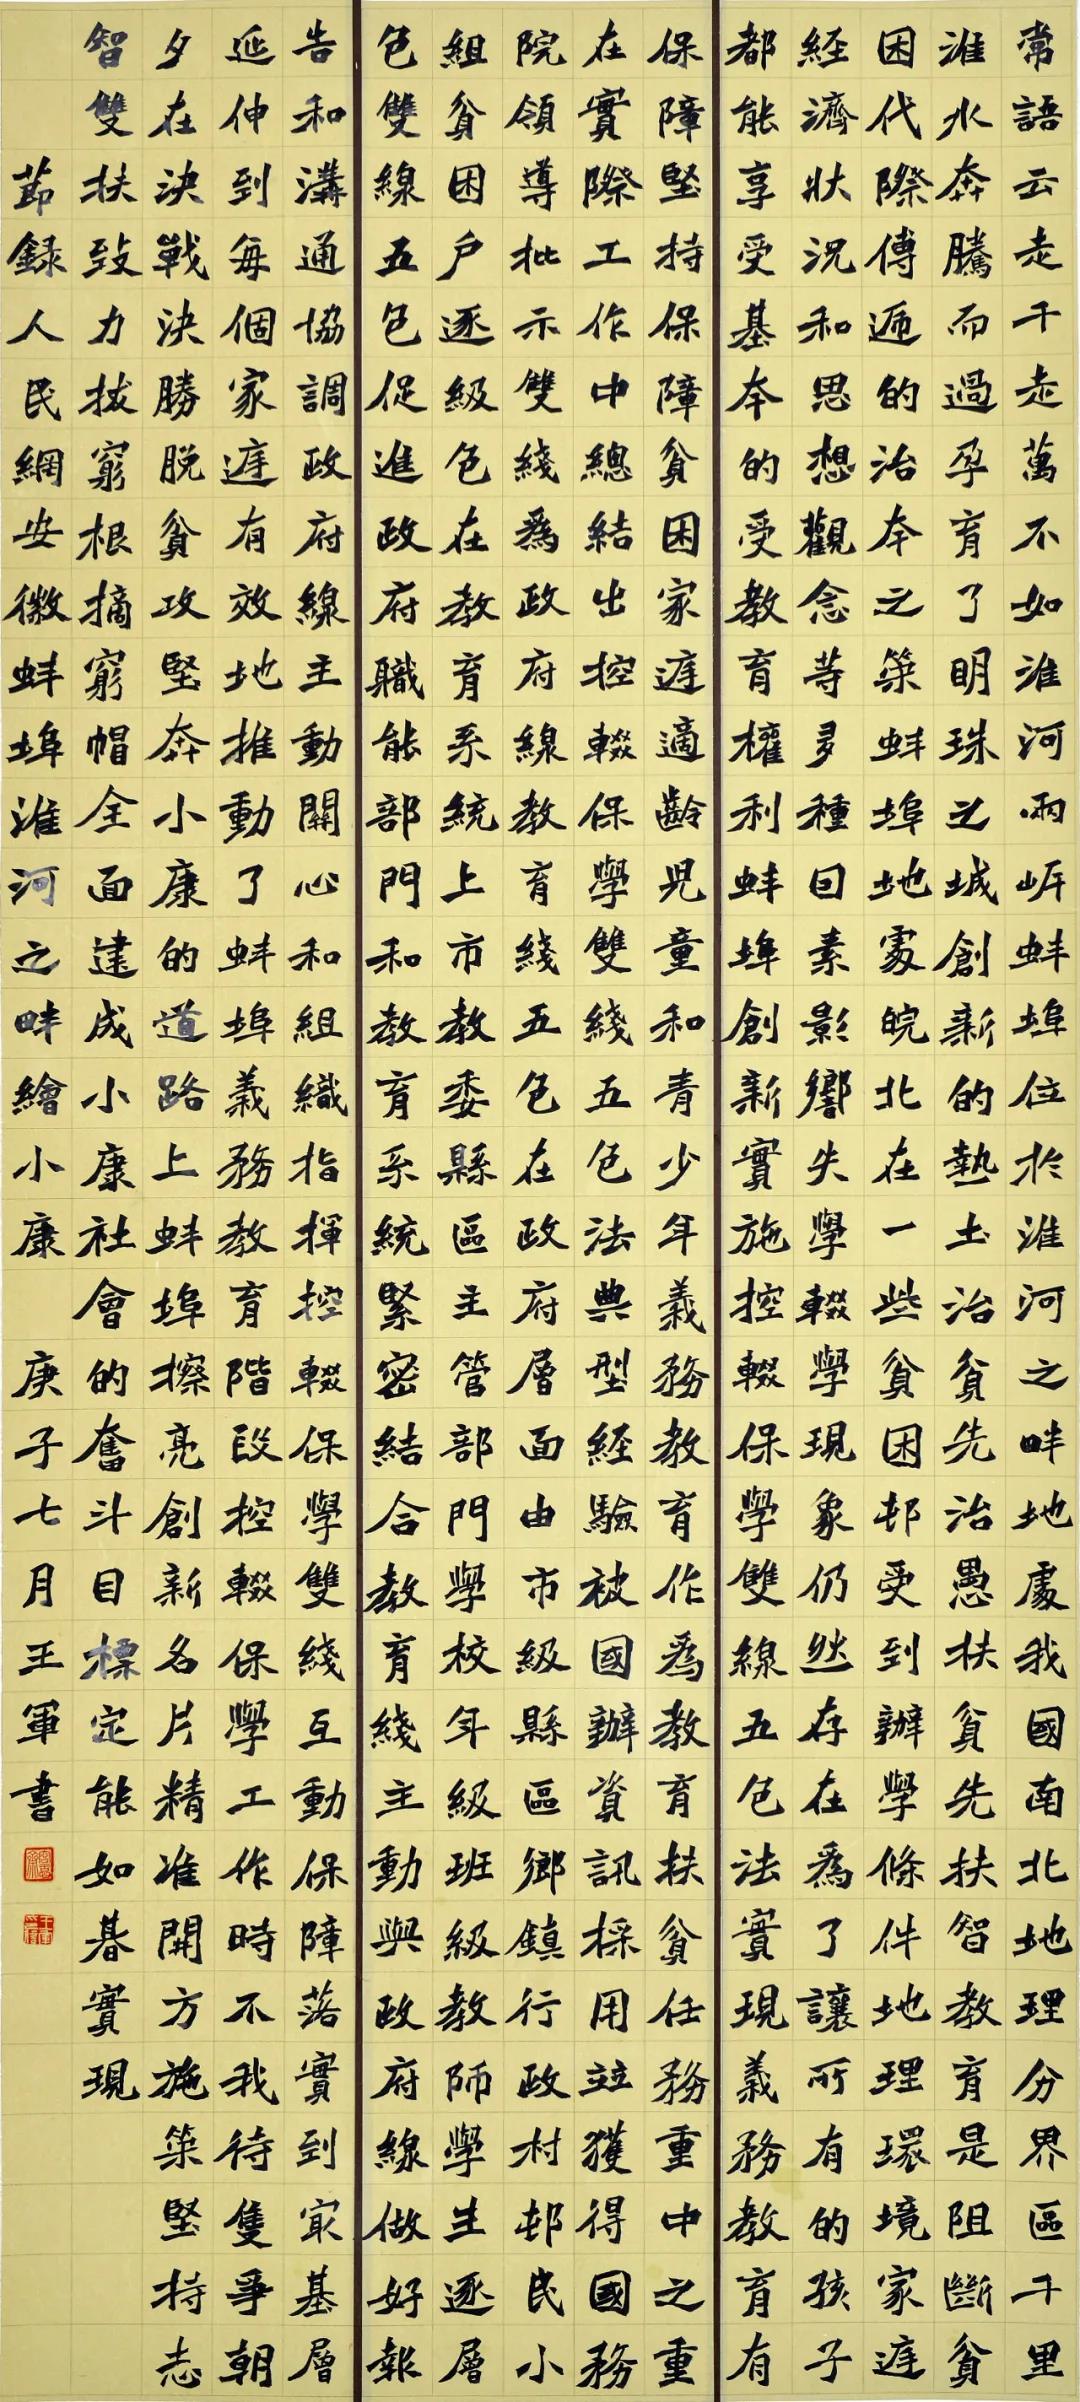 常語云走千走萬不如淮河兩岍蚌埠位於淮河之畔地處我國南北地理分界區千里
淮水奔騰而過孕育了明珠之城創新的熱土治貧先治愚扶貧先扶智教育是阻斷貧
困代際傳遞的治本之策蚌埠地處皖北在一些貧困邨受到辦學條件地理環境家庭
経濟狀況和思想觀念等多種因素影響失學輟學現象仍然存在為了讓所有的孩子
都能享受基本的受教育權利蚌埠創新實施控輟保學雙線五包法實現義務教育有
保障堅持保障貧困家庭適齡兒童和青少年義務教育作為教育扶貧任務重中之重
在實際工作中總結出控輟保學雙綫五包法典型経驗被國辦資訊採用並獲得國務
院領導批示雙綫為政府線教育綫五包在政府層面由市級縣區鄉鎮行政村邨民小
組貧困户逐級包在教育系統上市教委縣區主管部門學校年級班級教師學生逐層
包雙線五包促進政府職能部門和教育系統緊密結合教育綫主動與政府線做好報
告和溝通協調政府線主動關心和組織指揮控輟保學雙綫互動保障落實到㝡基層
延伸到每個家庭有效地推動了蚌埠義務教育階段控輟保學工作時不我待隻爭朝
夕在決戰決勝脫貧攻堅奔小康的道路上蚌埠擦亮創新名片精准開方施策堅持志
智雙扶致力拔窮根摘窮帽全面建成小康社會的奮斗目標定能如朞實現
節録人民網安徽蚌埠淮河之畔繪小康 庚子七月王軍書